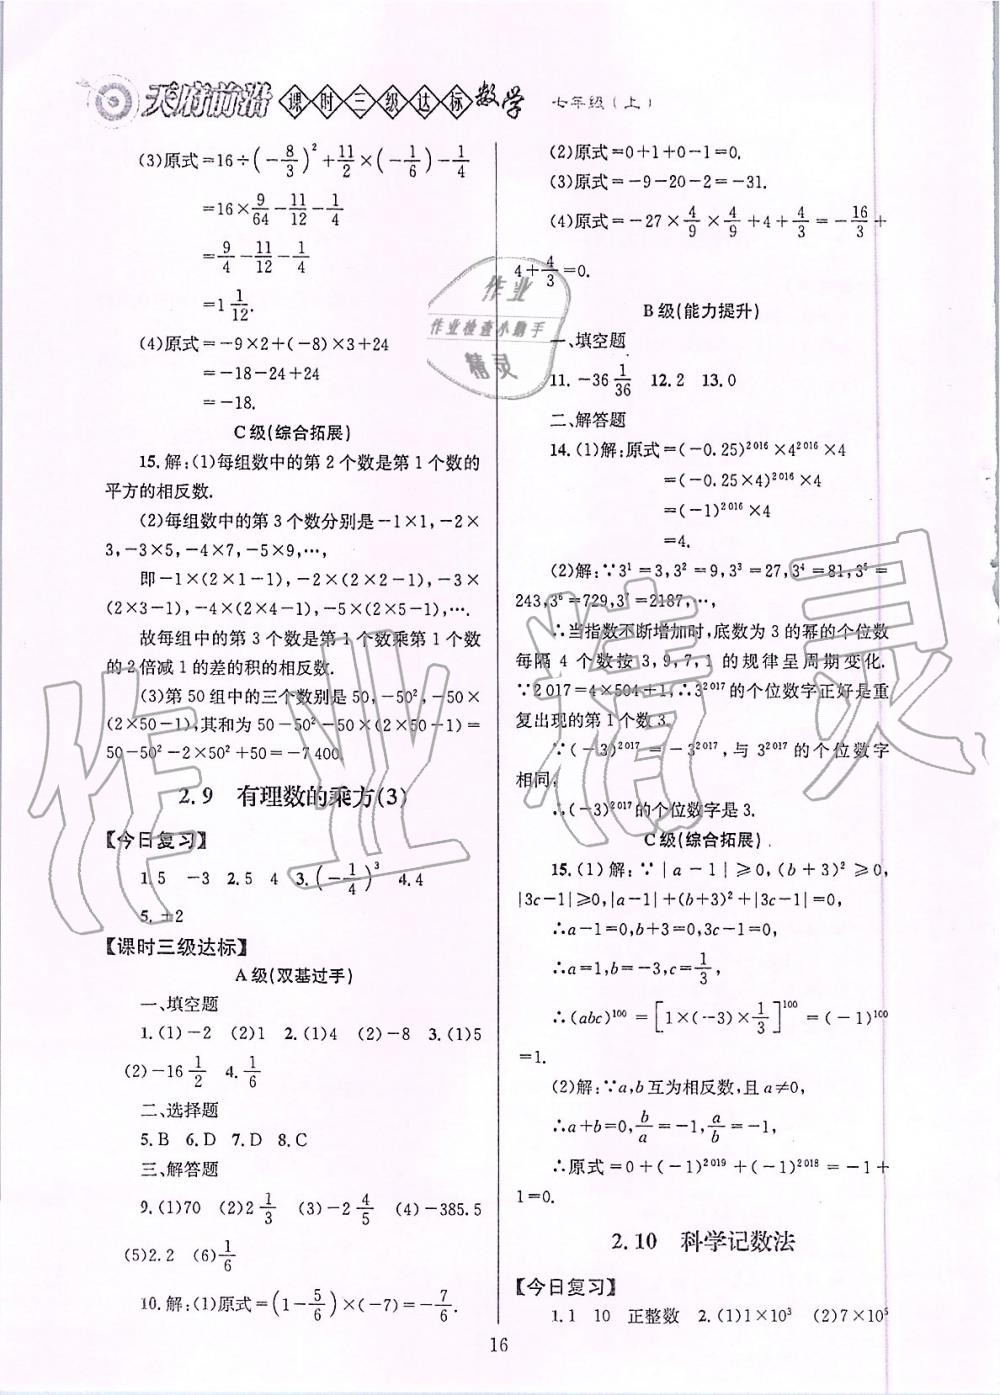 天府前沿 课时三级达标 数学 七年级(上)
(3)原式=16÷(-8/3)²+11/2×(-1/6)-1/4
=16×9/64-11/12-1/4
=9/4-11/12-1/4
=1 1/12.
(4)原式=-9×2+(-8)×3+24
=-18-24+24
=-18.
C级(综合拓展)
15.解:(1)每组数中的第2个数是第1个数的
平方的相反数.
(2)每组数中的第3个数分别是-1×1,-2×
3,-3×5,-4×7,-5×9,…,
即-1×(2×1-1),-2×(2×2-1),-3×
(2×3-1),-4×(2×4-1),-5×(2×5-1),….
故每组中的第3个数是第1个数乘第1个数
的2倍减1的差的积的相反数.
(3)第50组中的三个数别是50,-50²,-50×
(2×50-1),其和为50-50²-50×(2×50-1)=
50-50²-2×50²+50=-7400.
2.9 有理数的乘方(3)
【今日复习】
1.5 -3 2.5 4 3.(-1/4)³ 4.4
5.±2
【课时三级达标】
A级(双基过手)
一、填空题
1.(1)-2 (2)1 2.(1)4 (2)-8 3.(1)5
(2)-16 1/2 4.1/6
二、选择题
5.B 6.D 7.D 8.C
三、解答题
9.(1)70 (2)2 1/3 (3)-2 4/5 (4)-385.5
(5)2.2 (6)1/6
10.解:(1)原式=(1-5/6)×(-7)=-7/6.
(2)原式=0+1+0-1=0.
(3)原式=-9-20-2=-31.
(4)原式=-27×4/9×4/9+4+4/3=-16/3+
4+4/3=0.
B级(能力提升)
一、填空题
11.-36 1/36 12.2 13.0
二、解答题
14.(1)解:原式=(-0.25)²⁰¹⁶×4²⁰¹⁶×4
=(-0.25×4)²⁰¹⁶×4
=(-1)²⁰¹⁶×4
=4.
(2)解:∵3¹=3,3²=9,3³=27,3⁴=81,3⁵=
243,3⁶=729,3⁷=2187,…,
∴当指数不断增加时,底数为3的幂的个位数
每隔4个数按3,9,7,1的规律呈周期变化.
∵2017=4×504+1,∴3²⁰¹⁷的个位数字正好是重
复出现的第1个数3.
∵(-3)²⁰¹⁷=-3²⁰¹⁷,与3²⁰¹⁷的个位数字
相同,
∴(-3)²⁰¹⁷的个位数字是3.
C级(综合拓展)
15.(1)解:∵|a-1|⩾0,(b+3)²⩾0,
|3c-1|⩾0,|a-1|+(b+3)²+|3c-1|=0,
∴a-1=0,b+3=0,3c-1=0,
∴a=1,b=-3,c=1/3,
∴(abc)¹⁰⁰=[1×(-3)×1/3]¹⁰⁰=(-1)¹⁰⁰
=1.
(2)解:∵a,b互为相反数,且a≠0,
∴a+b=0,b/a=-1,a/b=-1,
∴原式=0+(-1)²⁰¹⁹+(-1)²⁰¹⁸=-1+
1=0.
2.10 科学记数法
【今日复习】
1.1 10 正整数 2.(1)1×10³ (2)7×10⁵
16
作业
作业检查小助手
精灵
作业精灵